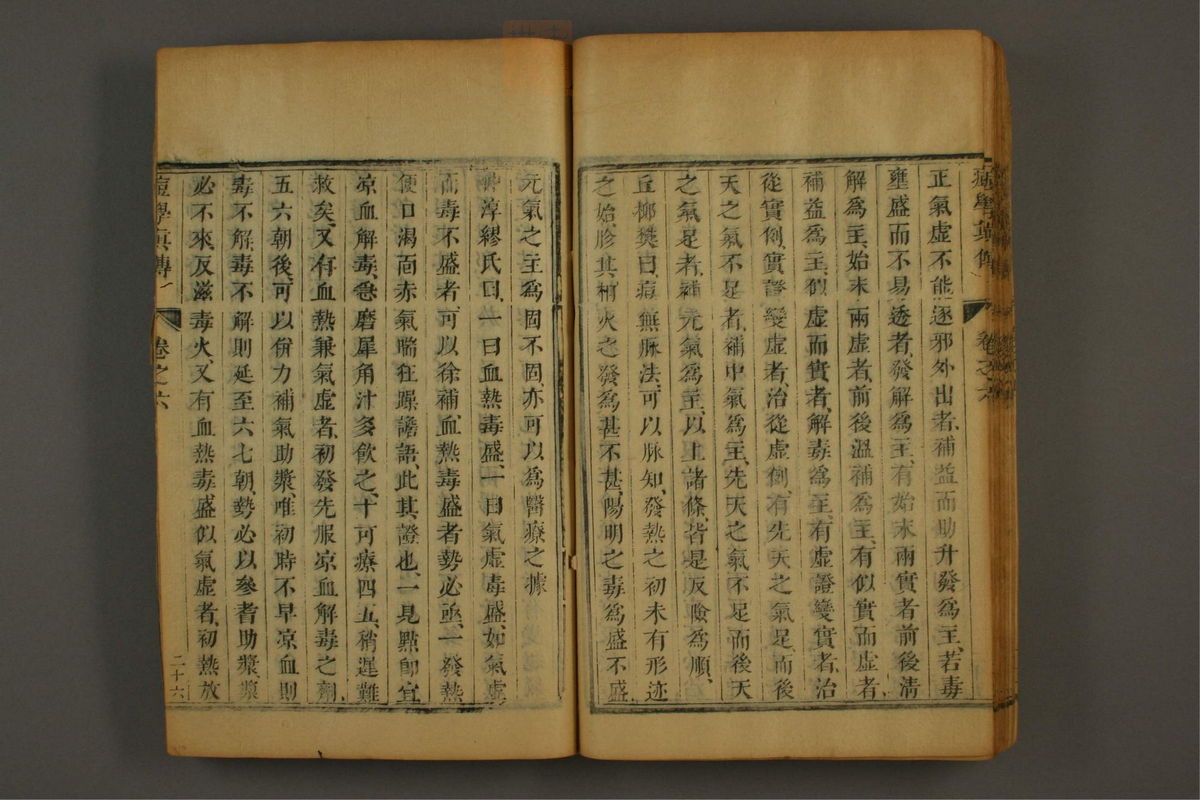 痘學眞傳
卷之六
正氣虛不能逐邪外出者、補益而助升發爲主、若毒
壅盛而不易透者、發解爲主、有始末兩實者、前後淸
解爲主、始末兩虛者、前後溫補爲主、有似實而虛者、
補益爲主、似虛而實者、解毒爲主、有虛證變實者、治
從實例、實證變虛者、治從虛例、有先天之氣足、而後
天之氣不足者、補中氣爲主、先天之氣不足而後天
之氣足者、補元氣爲主、以上諸條、皆是反險爲順、
丘櫛樊曰、痘無脉法、可以脉知、發熱之初未有形迹
之始、胗其相火之發爲甚不甚、陽明之毒爲盛不盛
元氣之主爲固不固、亦可以爲醫療之據
淳繆氏曰、一曰血熱毒盛、一曰氣虛毒盛、如氣虛
而毒不盛者、可以徐補、血熱毒盛者勢必亟、一發熱
便口渴面赤氣喘狂躁譫語、此其證也、一見點卽宜
凉血解毒、急磨犀角汁多飮之、十可療四五、稍遲難
救矣、又有血熱兼氣虛者、初發先服凉血解毒之劑、
五六朝後、可以倂力補氣助漿、唯初時不早凉血則
毒不解、毒不解則延至六七朝、勢必以參耆助漿、漿
必不來、反滋毒火、又有血熱毒盛似氣虛者、初熱放
痘學眞傳
卷之六
二十六